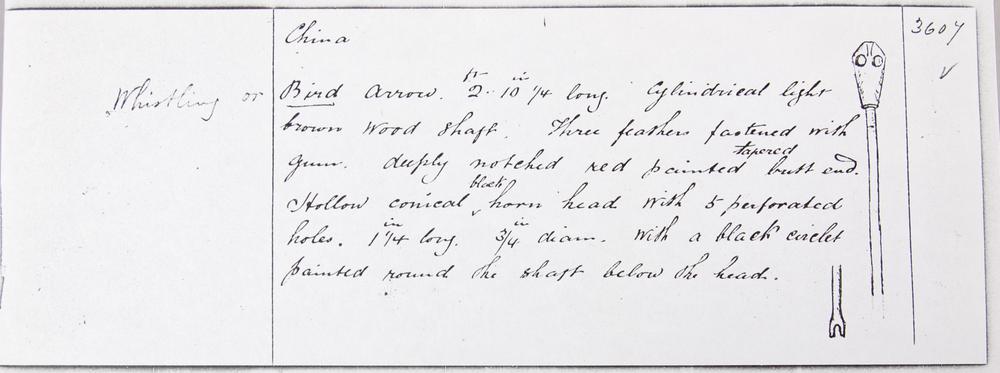 China
3607
Whistling or
Bird Arrow. 2 ft 10 1/4 in long. Cylindrical light
brown wood shaft. Three feathers fastened with
gum. deeply notched red painted tapered butt end.
Hollow conical black horn head with 5 perforated
holes. 1 1/4 in long. 3/4 in diam. With a black circlet
painted round the shaft below the head.